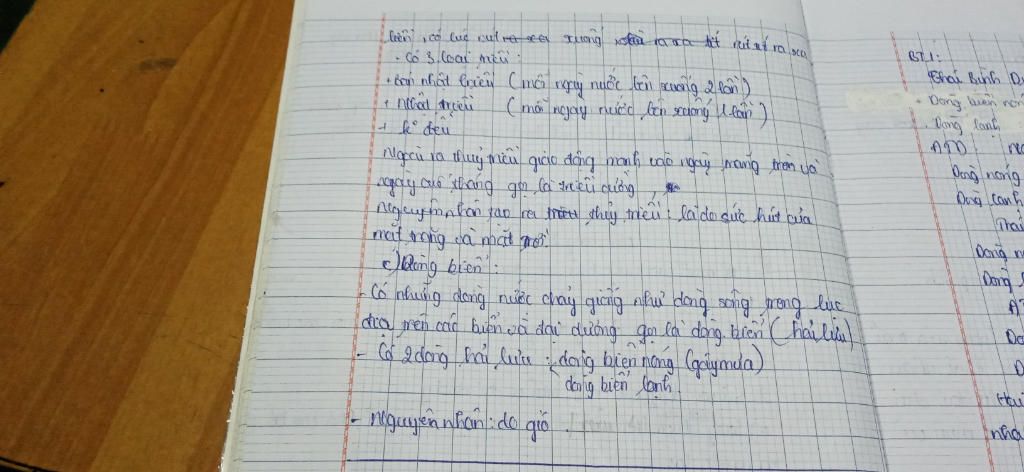 biển, có lúc rút xuống rút xa ra xa
- Có 3 loại triều:
+ bán nhật triều (mỗi ngày nước lên xuống 2 lần)
+ Nhật triều (mỗi ngày nước lên xuống 1 lần)
+ k° đều
Ngoài ra thuỷ triều giao động mạnh vào ngày trăng tròn và
ngày cuối tháng gọi là triều cường,
Nguyên nhân tạo ra thủy triều: là do sức hút của
mặt trăng và mặt trời.
c) Dòng biển:
- Có những dòng nước chảy giống như dòng sông trong lục
địa trên các biển và đại dương gọi là dòng biển (hải lưu)
- Có 2 dòng hải lưu: dòng biển nóng (gây mưa)
dòng biển lạnh
- Nguyên nhân: do gió.
BT1:
Thái Bình D
- Dòng biển nón
- Dòng lạnh
ATD:
Dòng nóng
Dòng lạnh
Thái
Dòng n
Dòng l